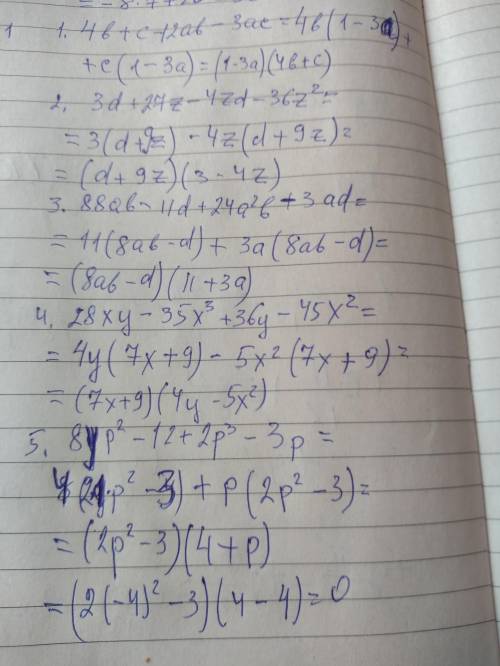 1 1. 4в+с-12ав-3ас=4в(1-3а)+
+с(1-3а)=(1-3а)(4в+с)
2. 3d+27z-4zd-36z²=
=3(d+9z)-4z(d+9z)=
=(d+9z)(3-4z)
3. 88ав-11d+24а²в+3ad=
=11(8ав-d)+3а(8ав-d)=
=(8ав-d)(11+3а)
4. 28xy-35x³+36y-45x²=
=4y(7x+9)-5x²(7x+9)=
=(7x+9)(4y-5x²)
5. 8p²-12+2p³-3p=
4(2p²-3)+p(2p²-3)=
=(2p²-3)(4+p)
=(2(-4)²-3)(4-4)=0